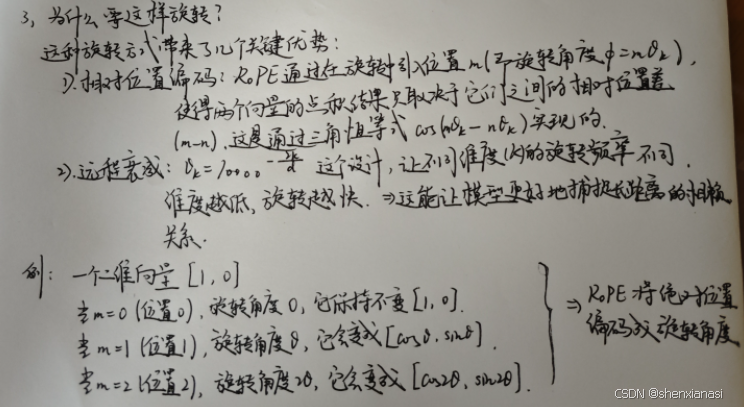 3、为什么要这样旋转?
这种旋转方式带来了几个关键优势:
1).相对位置编码: RoPE通过在旋转中引入位置m(即旋转角度φ=mθₖ),
使得两个向量的点积结果只取决于它们之间的相对位置差
(m-n).这是通过三角恒等式cos(mθₖ-nθₖ)实现的.
2).远程衰减: θₖ=10000^(-2k/d) 这个设计,让不同维度的旋转频率不同.
维度越低,旋转越快.⇒这能让模型更好地捕捉长距离的相对
关系.
例: 一个二维向量 [1,0]
当m=0(位置0),旋转角度0,它保持不变[1,0].
当m=1(位置1),旋转角度θ,它会变成[cosθ,sinθ].
当m=2(位置2),旋转角度2θ,它会变成[cos2θ,sin2θ].
⇒ RoPE将绝对位置
编码成旋转角度
CSDN @shenxianasi